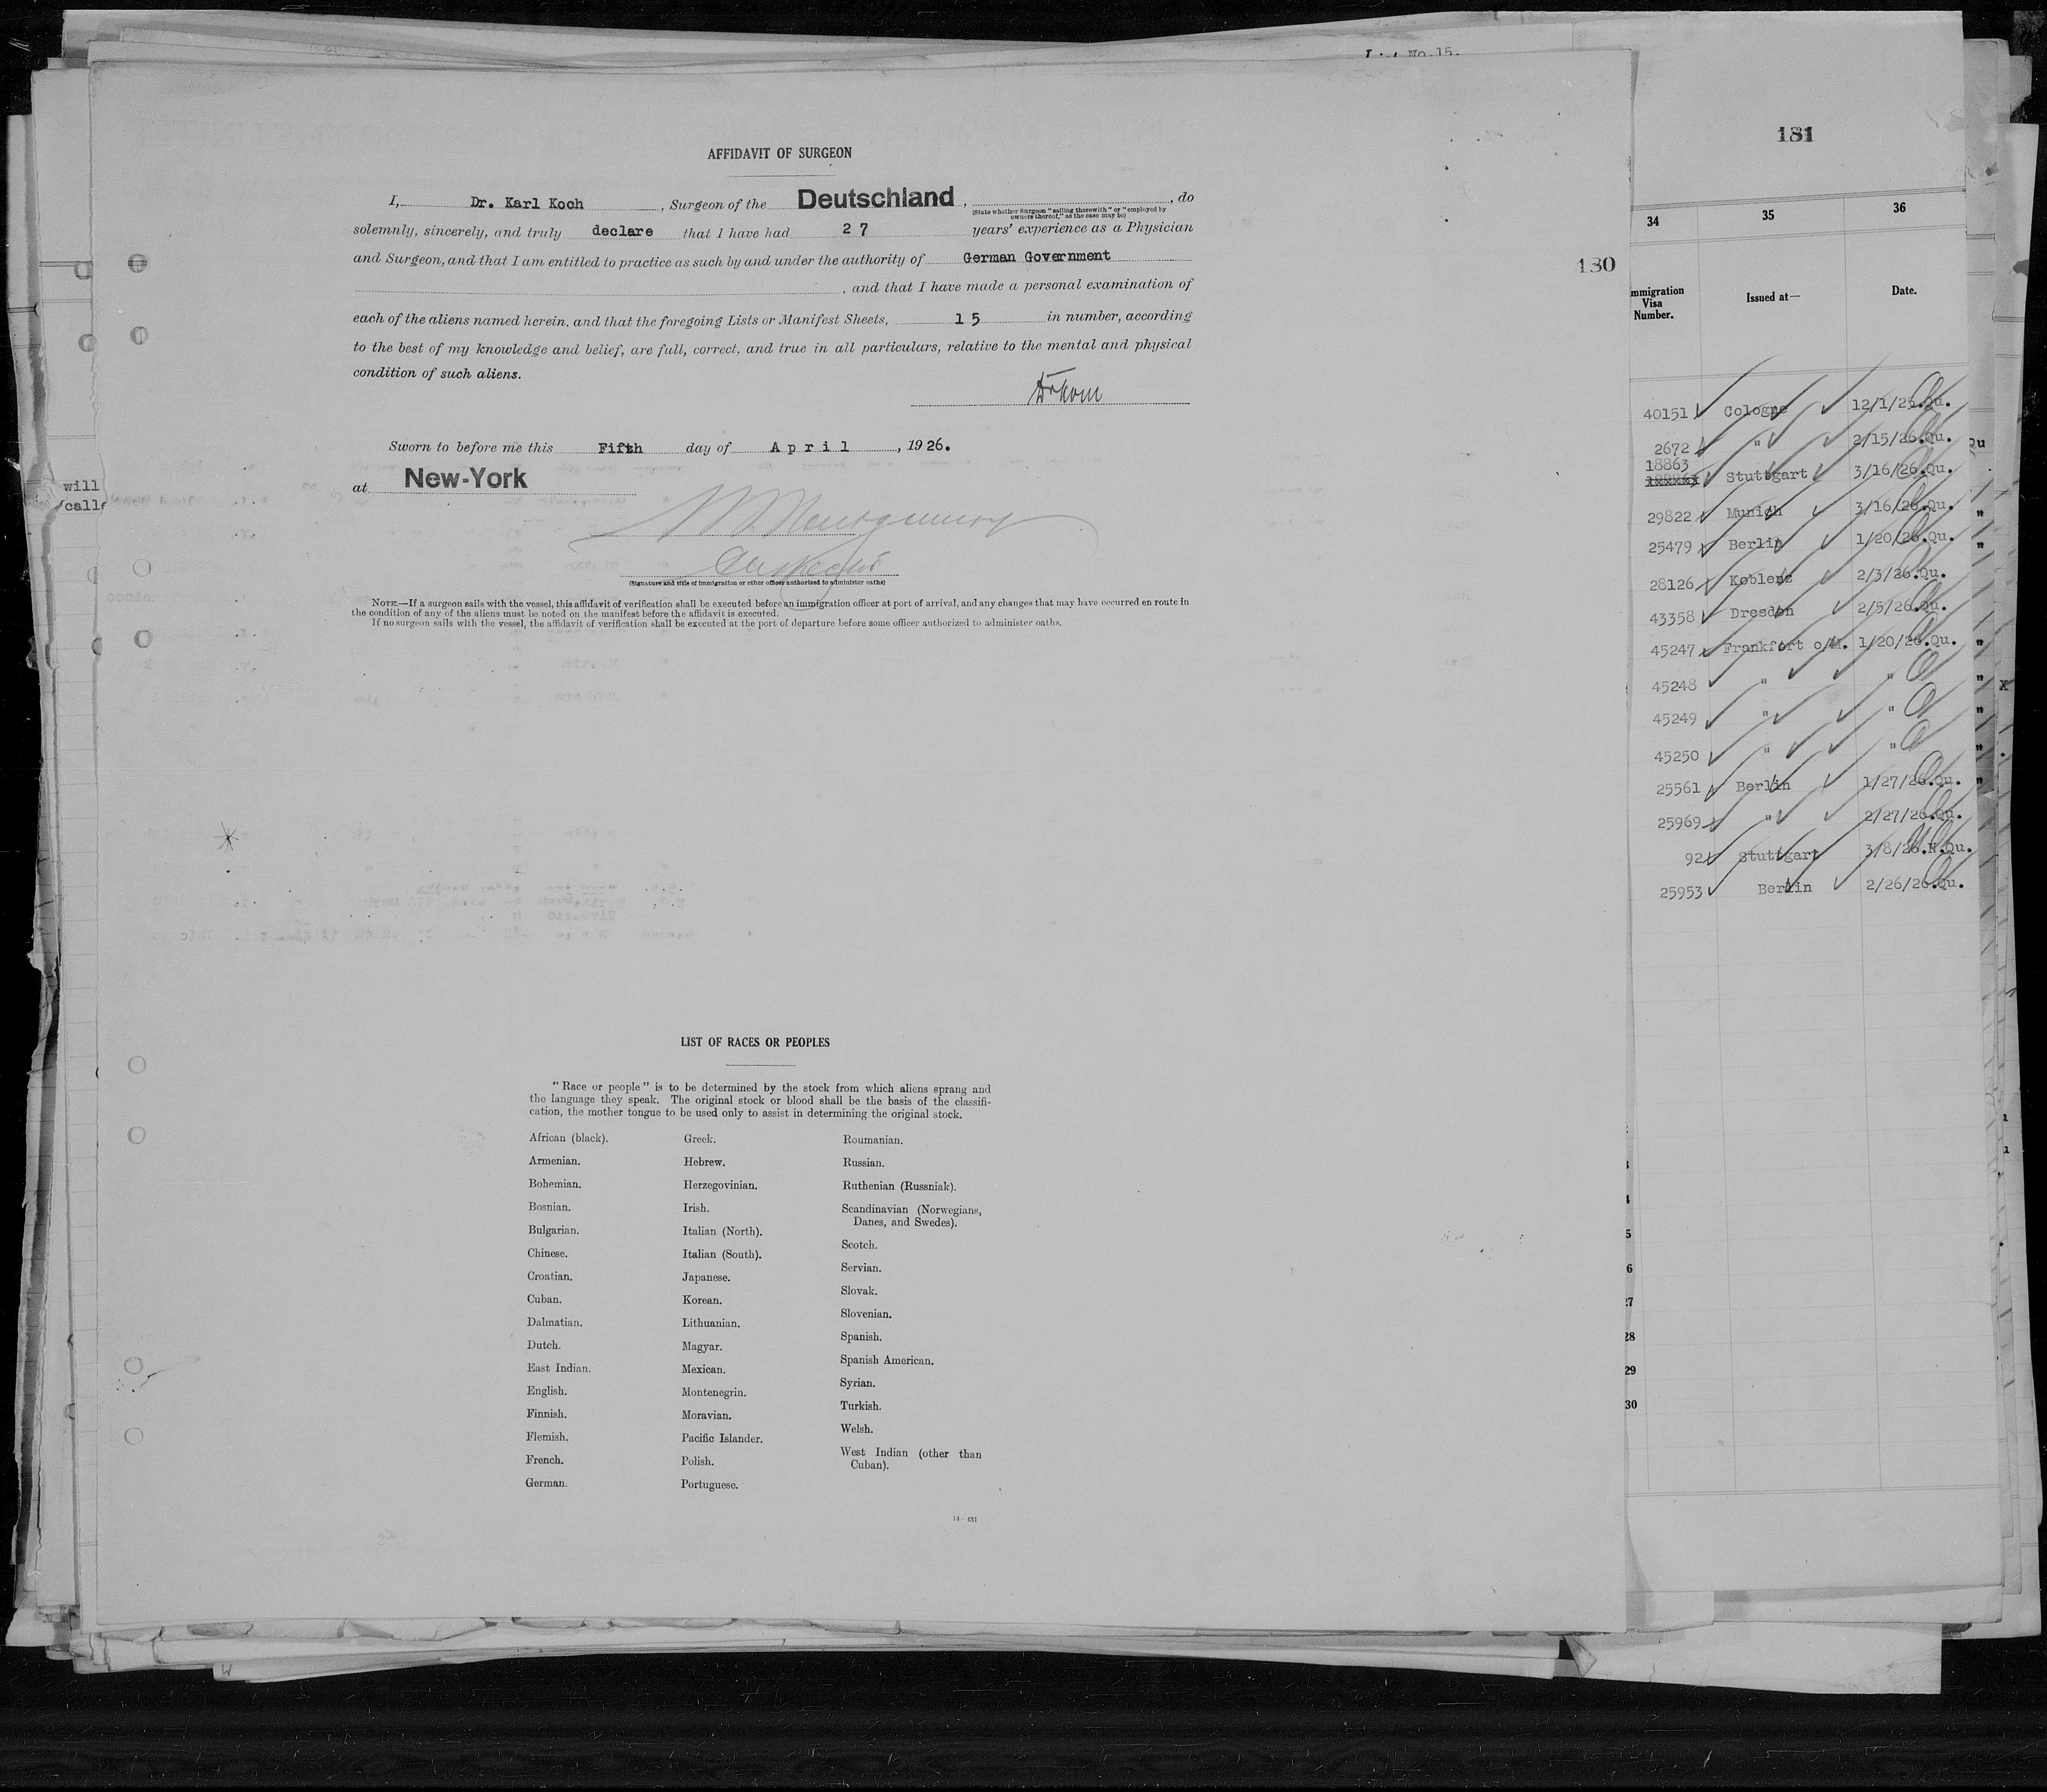 List No.15.
181
AFFIDAVIT OF SURGEON
I, Dr. Karl Koch, Surgeon of the Deutschland, , do
(State whether Surgeon "sailing therewith" or "employed by owners thereof," as the case may be)
solemnly, sincerely, and truly declare that I have had 27 years' experience as a Physician
and Surgeon, and that I am entitled to practice as such by and under the authority of German Government
, and that I have made a personal examination of
each of the aliens named herein, and that the foregoing Lists or Manifest Sheets, 15 in number, according
to the best of my knowledge and belief, are full, correct, and true in all particulars, relative to the mental and physical
condition of such aliens.
Sworn to before me this Fifth day of April, 1926.
at New-York
(Signature and title of immigration or other officer authorized to administer oaths)
NOTE.—If a surgeon sails with the vessel, this affidavit of verification shall be executed before an immigration officer at port of arrival, and any changes that may have occurred en route in
the condition of any of the aliens must be noted on the manifest before the affidavit is executed.
If no surgeon sails with the vessel, the affidavit of verification shall be executed at the port of departure before some officer authorized to administer oaths.
180
will
call
LIST OF RACES OR PEOPLES
"Race or people" is to be determined by the stock from which aliens sprang and
the language they speak. The original stock or blood shall be the basis of the classifi-
cation, the mother tongue to be used only to assist in determining the original stock.
African (black).
Armenian.
Bohemian.
Bosnian.
Bulgarian.
Chinese.
Croatian.
Cuban.
Dalmatian.
Dutch.
East Indian.
English.
Finnish.
Flemish.
French.
German.
Greek.
Hebrew.
Herzegovinian.
Irish.
Italian (North).
Italian (South).
Japanese.
Korean.
Lithuanian.
Magyar.
Mexican.
Montenegrin.
Moravian.
Pacific Islander.
Polish.
Portuguese.
Roumanian.
Russian.
Ruthenian (Russniak).
Scandinavian (Norwegians,
Danes, and Swedes).
Scotch.
Servian.
Slovak.
Slovenian.
Spanish.
Spanish American.
Syrian.
Turkish.
Welsh.
West Indian (other than
Cuban).
14—431
34 35 36
Immigration
Visa
Number.
Issued at—
Date.
40151 Cologne 12/1/25.Qu.
2672 " 2/15/26.Qu.
18863 Stuttgart 3/16/26.Qu.
29822 Munich 3/16/26.Qu.
25479 Berlin 1/20/26.Qu.
28126 Koblenz 2/3/26.Qu.
43358 Dresden 2/5/26.Qu.
45247 Frankfort o/M. 1/20/26.Qu.
45248 " "
45249 " "
45250 " "
25561 Berlin 1/27/26.Qu.
25969 " 2/27/26.Qu.
92 Stuttgart 3/8/26.N.Qu.
25953 Berlin 2/26/26.Qu.
28
29
30